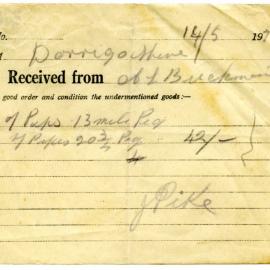 No. 14/5 19
Dorrigo Shire
Received from A L Buckman
good order and condition the undermentioned goods:—
Pipes 13 mile Peg
Pipes 20 3/4 Peg 42/-
J Pike